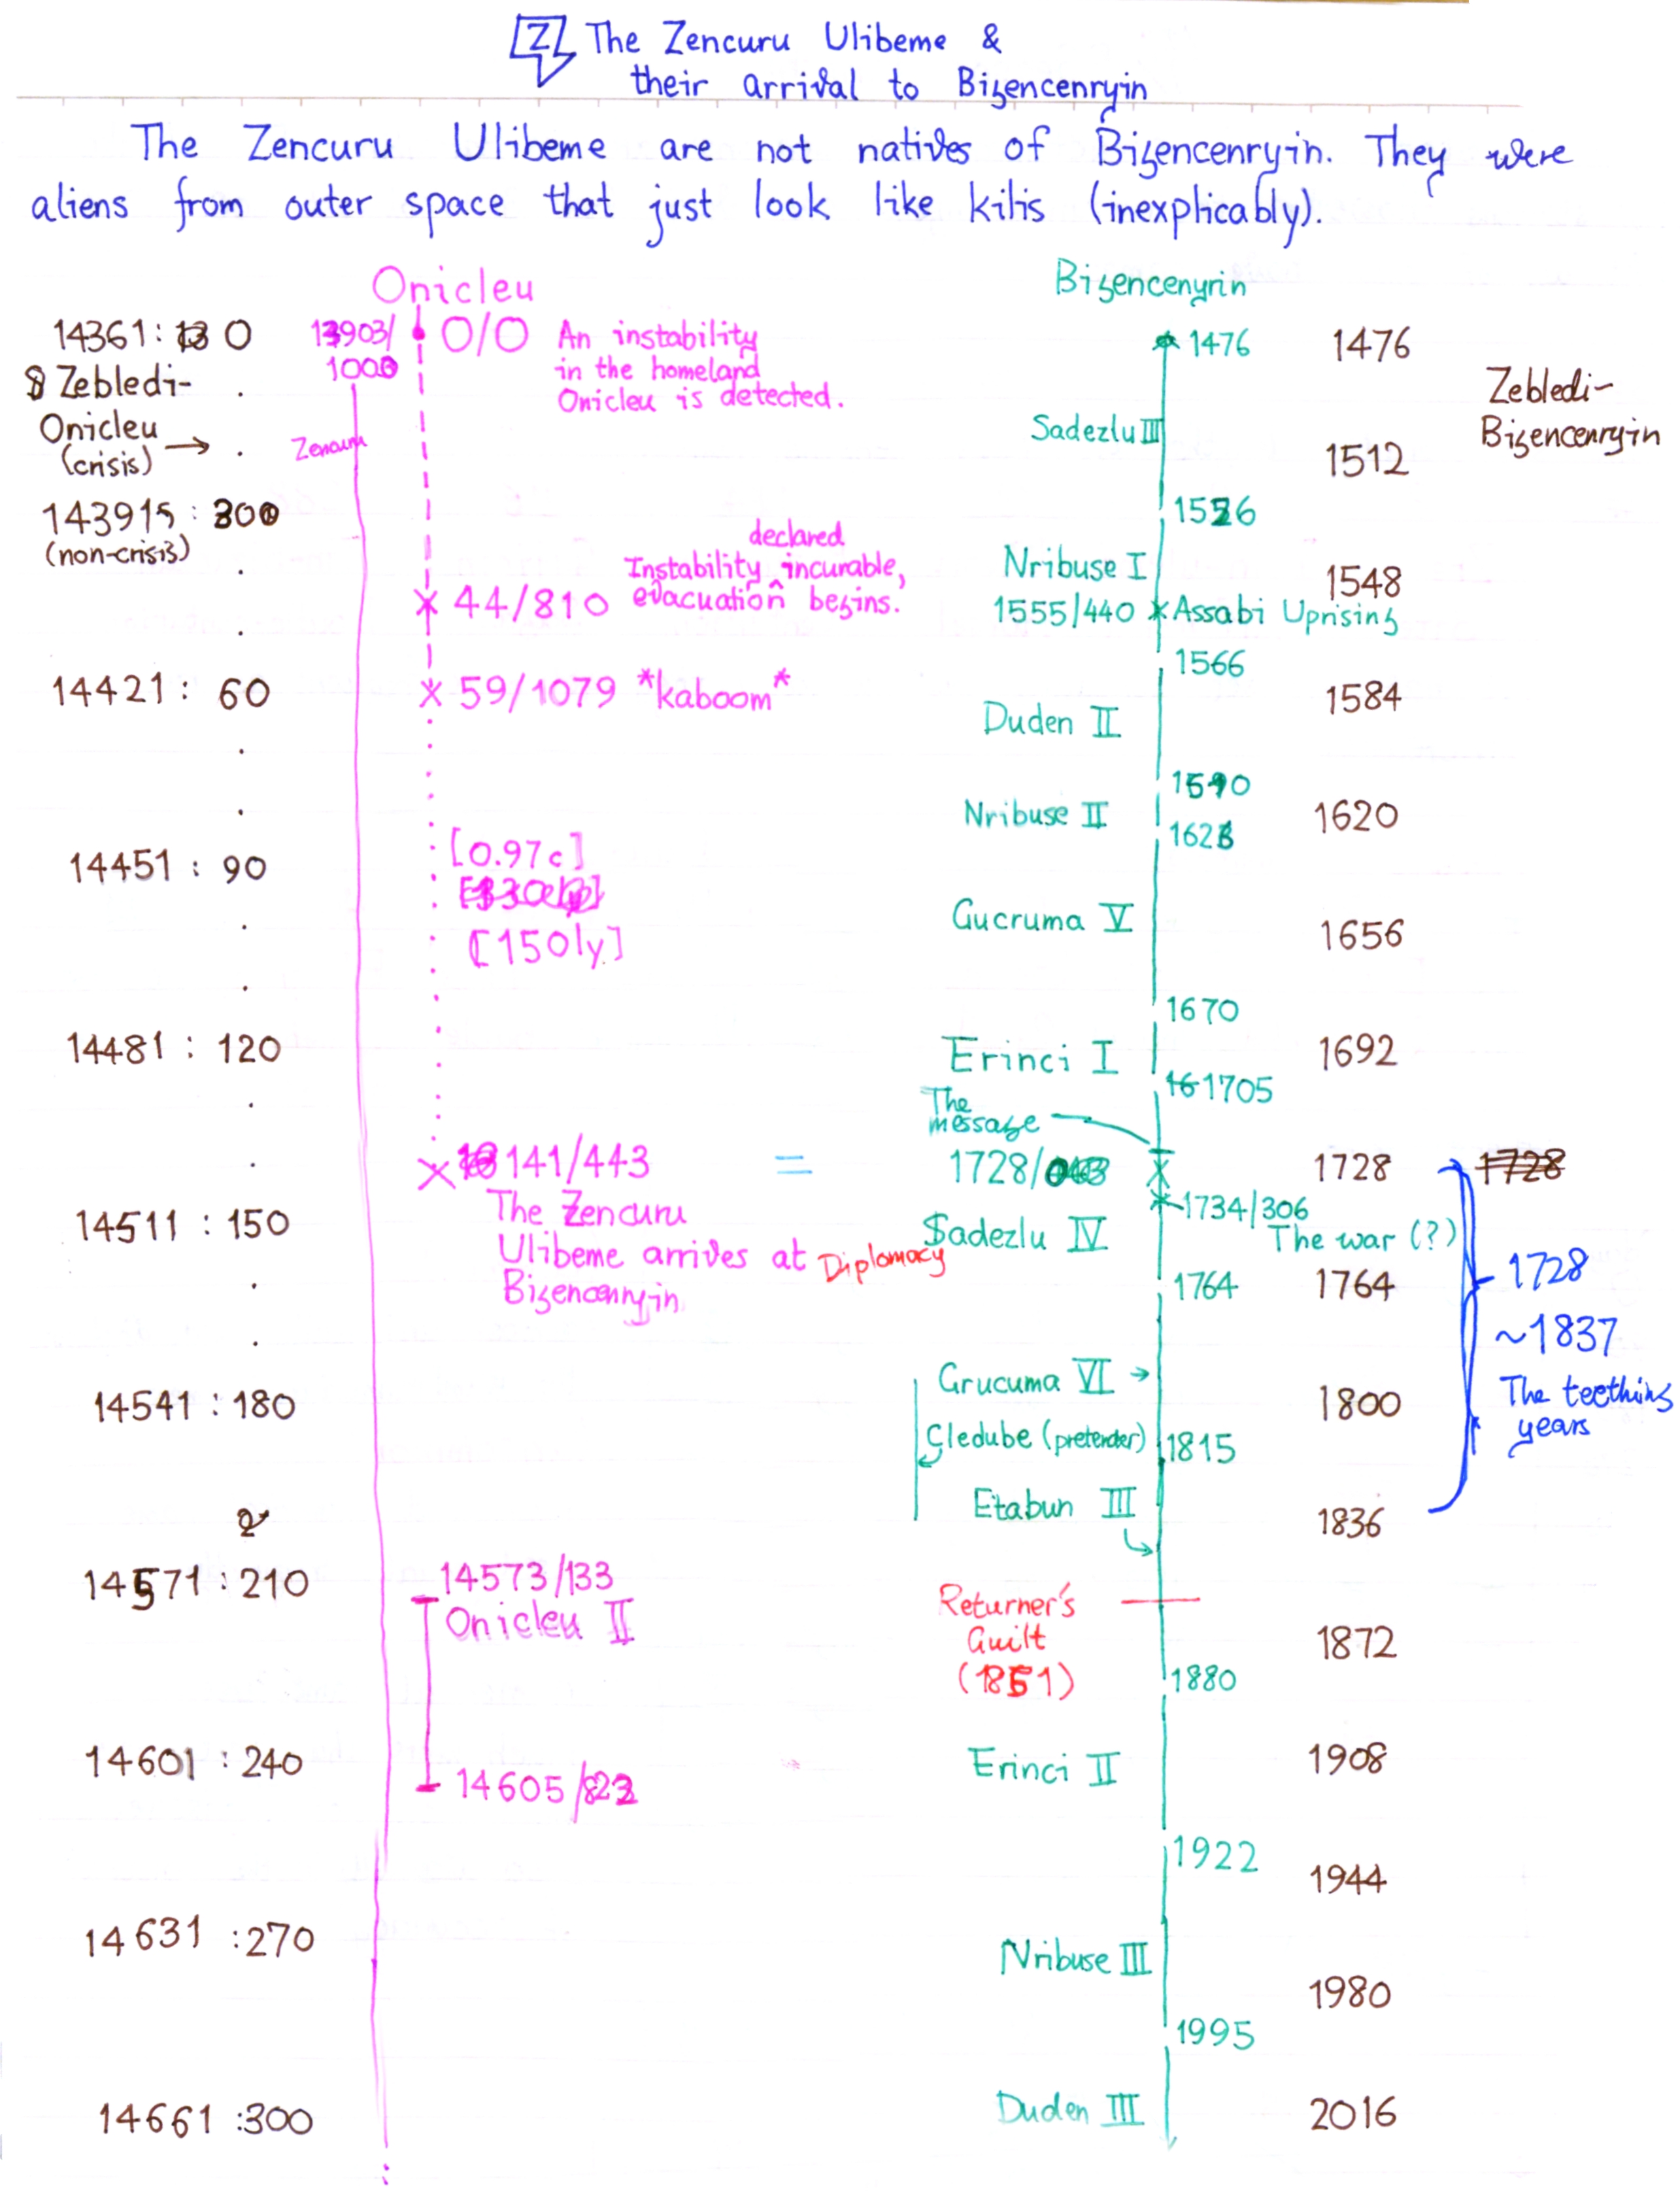 Z The Zencuru Ulibeme &
their arrival to Bizencenryin
The Zencuru Ulibeme are not natives of Bizencenryin. They were
aliens from outer space that just look like kilis (inexplicably).
Onicleu
Bizencenyrin
14361: 0
13903/
1000
0/0
An instability
in the homeland
Onicleu is detected.
Zebledi-
Onicleu
(crisis) →
Zencuru
143915: 300
(non-crisis)
44/810
declared
Instability ^ incurable,
evacuation begins.
14421: 60
59/1079 *kaboom*
14451: 90
[0.97c]
[150ly]
14481: 120
141/443
The Zencuru
Ulibeme arrives at
Bizencenryin
Diplomacy
=
14511: 150
14541: 180
14571: 210
14573/133
Onicleu II
14601: 240
14605/823
14631: 270
14661: 300
1476
Sadezlu III
1526
Nribuse I
1555/440
Assabi Uprising
1566
Duden II
1590
Nribuse II
1623
Gucruma V
1670
Erinci I
16 1705
The
message
1728/
1734/306
The war (?)
Sadezlu IV
1764
Grucuma VI →
Gledube (pretender)
1815
Etabun III
Returner's
Guilt
(1851)
1880
Erinci II
1922
Nribuse III
1995
Duden III
1476
Zebledi-
Bizencenryin
1512
1548
1584
1620
1656
1692
1728
1728
1764
1728
~1837
The teething
years
1800
1836
1872
1908
1944
1980
2016